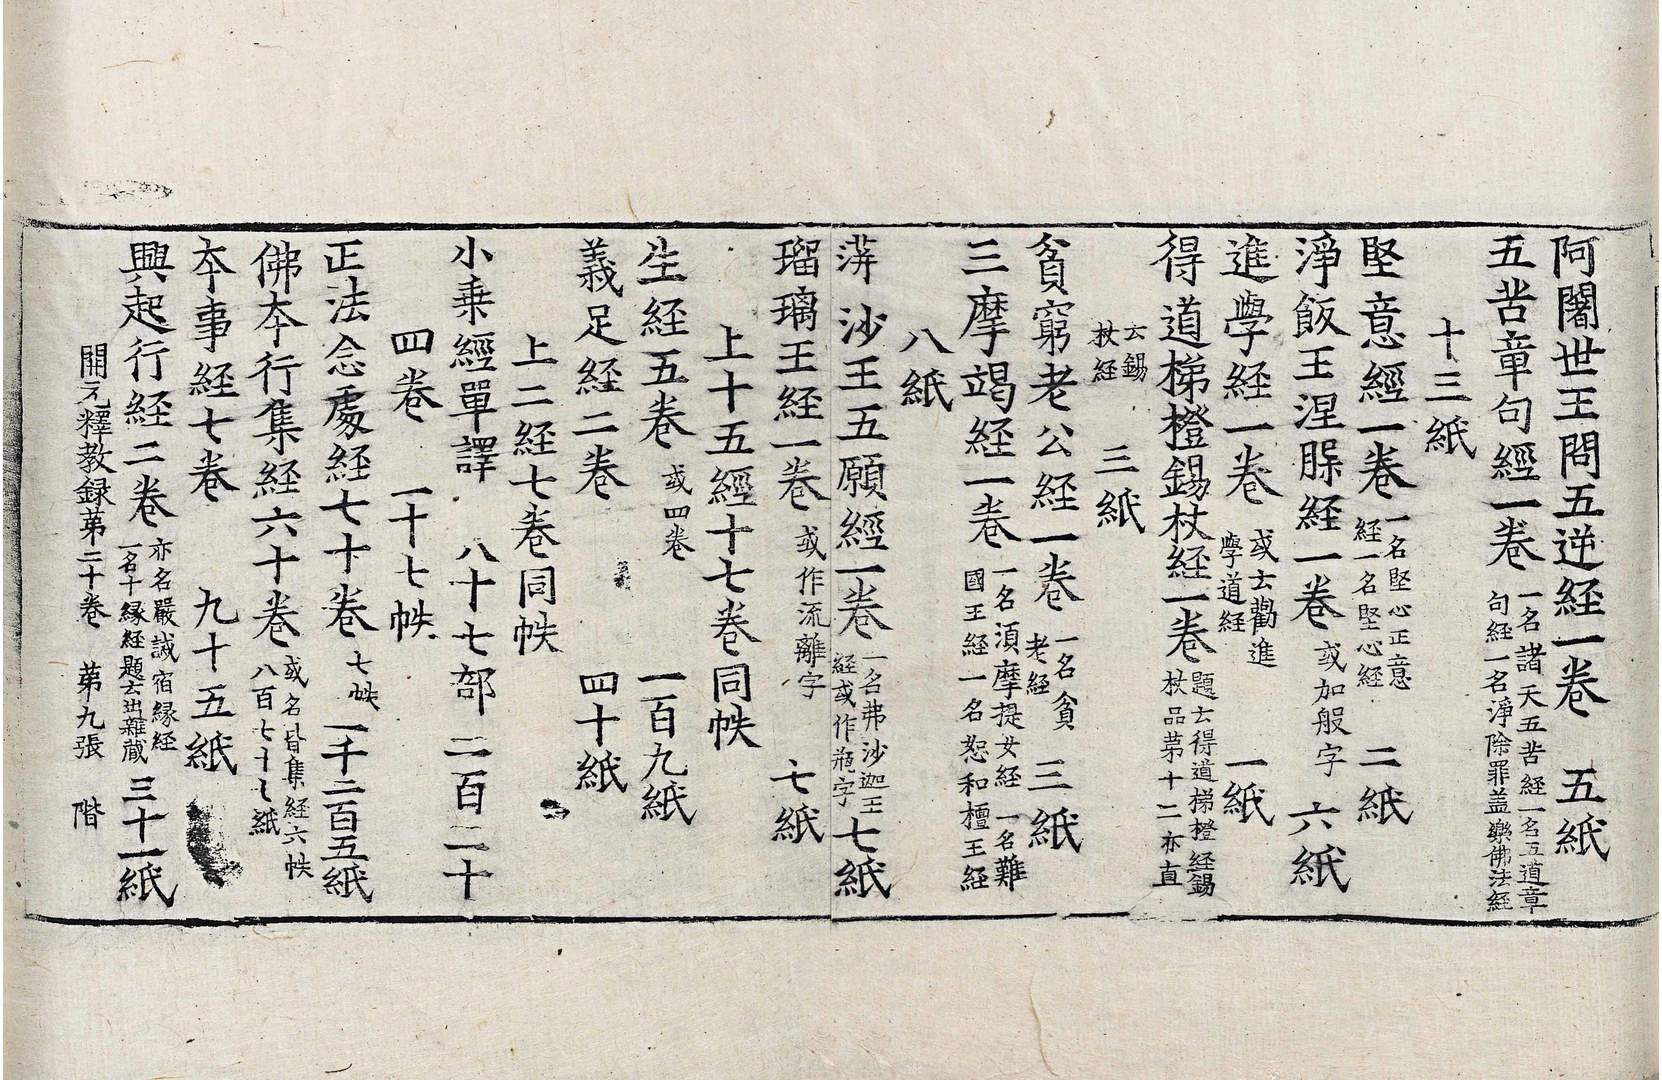 阿闍世王問五逆経一卷 五紙
五苦章句經一卷 一名諸天五苦経一名五道章
句経一名淨除罪盖樂佛法経
十三紙
堅意經一卷 一名堅心正意
経一名堅心経 二紙
淨飯王涅槃経一卷 或加般字 六紙
進學経一卷 或云勸進
學道経 一紙
得道梯橙錫杖経一卷 題云得道梯橙経錫
杖品苐十二亦直
云錫
杖経 三紙
貧窮老公経一卷 一名貧
老経 三紙
三摩竭経一卷 一名湏摩提女経一名難
國王経一名恕和檀王経
八紙
蓱沙王五願經一卷 一名弗沙迦王
経或作瓶字 七紙
瑠璃王経一卷 或作流離字 七紙
上十五經十七卷同帙
生経五卷 或四卷 一百九紙
義足経二卷 四十紙
上二経七卷同帙
小乗經單譯 八十七部 二百二十
四卷 一十七帙
正法念處経七十卷 七帙 一千二百五紙
佛夲行集経六十卷 或名皆集経六帙
八百七十七紙
夲事経七卷 九十五紙
興起行経二卷 亦名嚴誡宿縁経
一名十縁経題云出雜藏 三十一紙
開元釋教録苐二十卷 苐九張 階